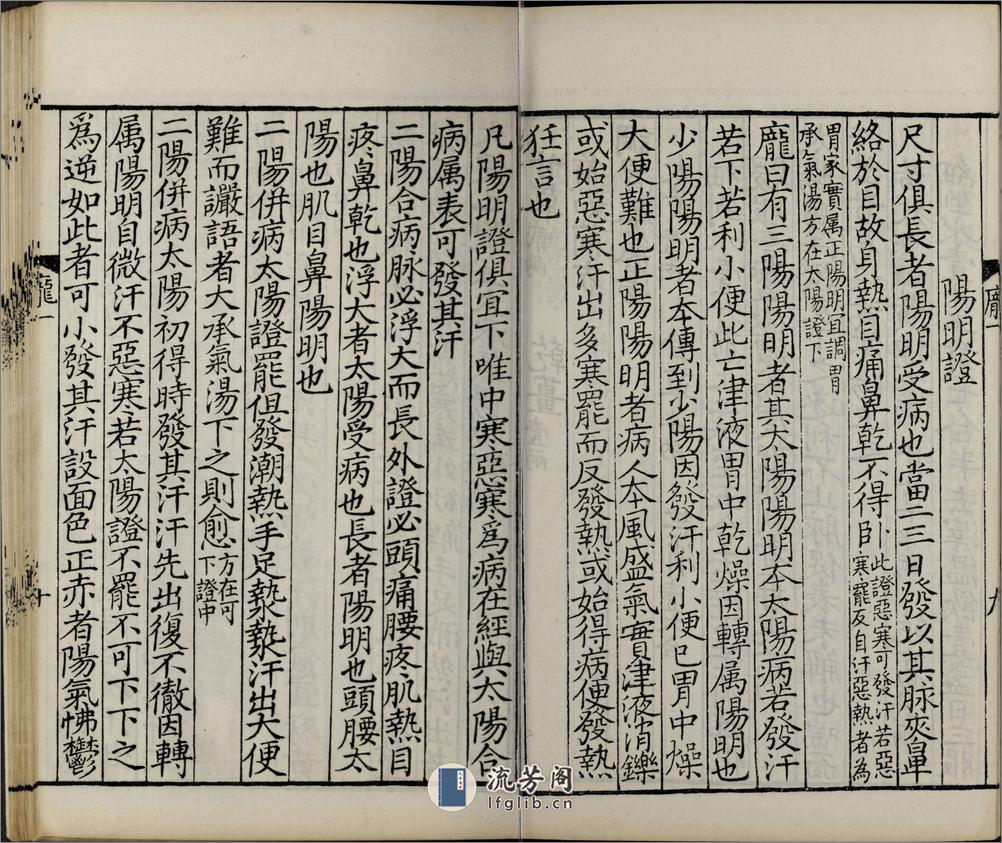 陽明證
尺寸俱長者陽明受病也當二三日發以其脉夾鼻
絡於目故身熱目痛鼻乾不得卧此證惡寒可發汗若惡
寒罷反自汗惡熱者為
胃家實属正陽明宜調胃
承氣湯方在太陽證下
龐曰有三陽陽明者其太陽陽明本太陽病若發汗
若下若利小便此亡津液胃中乾燥因轉属陽明也
少陽陽明者本傳到少陽因發汗利小便已胃中燥
大便難也正陽陽明者病人本風盛氣實津液消鑠
或始惡寒汗出多寒罷而反發熱或始得病便發熱
狂言也
龐一
九
凡陽明證俱宜下唯中寒惡寒為病在經與太陽合
病属表可發其汗
二陽合病脉必浮大而長外證必頭痛腰疼肌熱目
疼鼻乾也浮大者太陽受病也長者陽明也頭腰太
陽也肌目鼻陽明也
二陽併病太陽證罷但發潮熱手足漐漐汗出大便
難而讝語者大承氣湯下之則愈方在可
下證中
二陽併病太陽初得時發其汗汗先出復不徹因轉
属陽明自微汗不惡寒若太陽證不罷不可下下之
為逆如此者可小發其汗設面色正赤者陽氣怫鬱
龐一
十
流芳阁
lfglib.cn